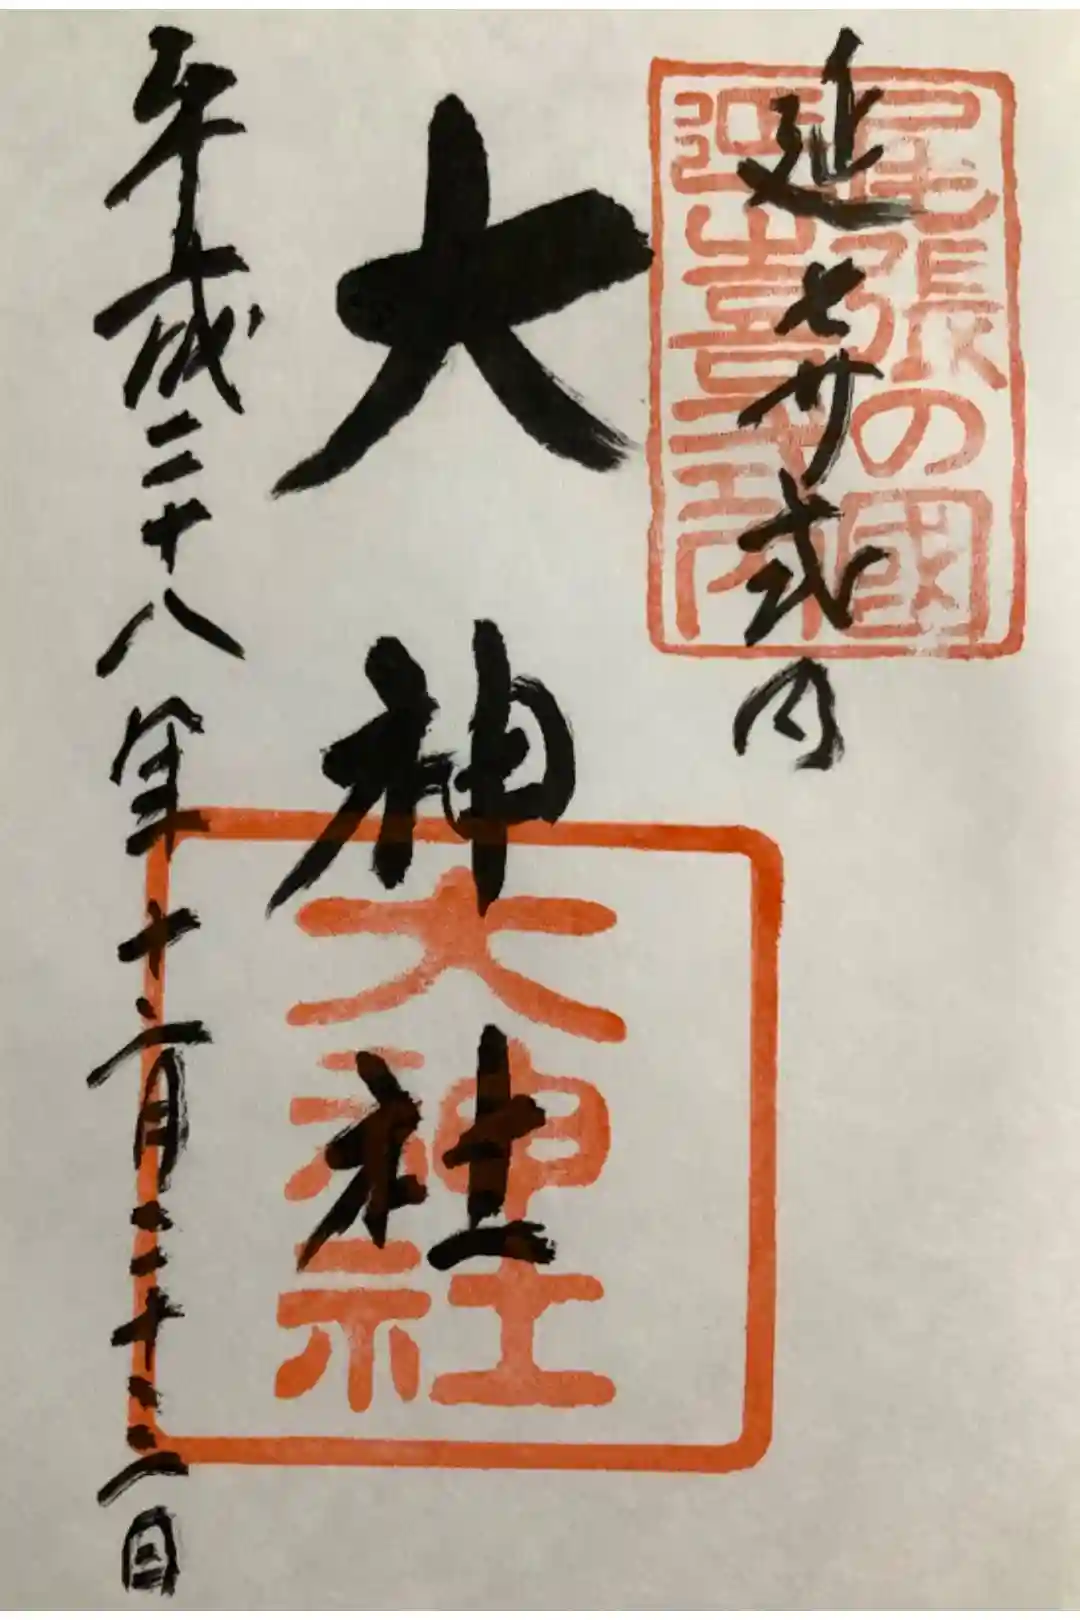 尾張の國
延喜式内
延㐂式内
大神社
大神社
平成二十八年十二月二十三日